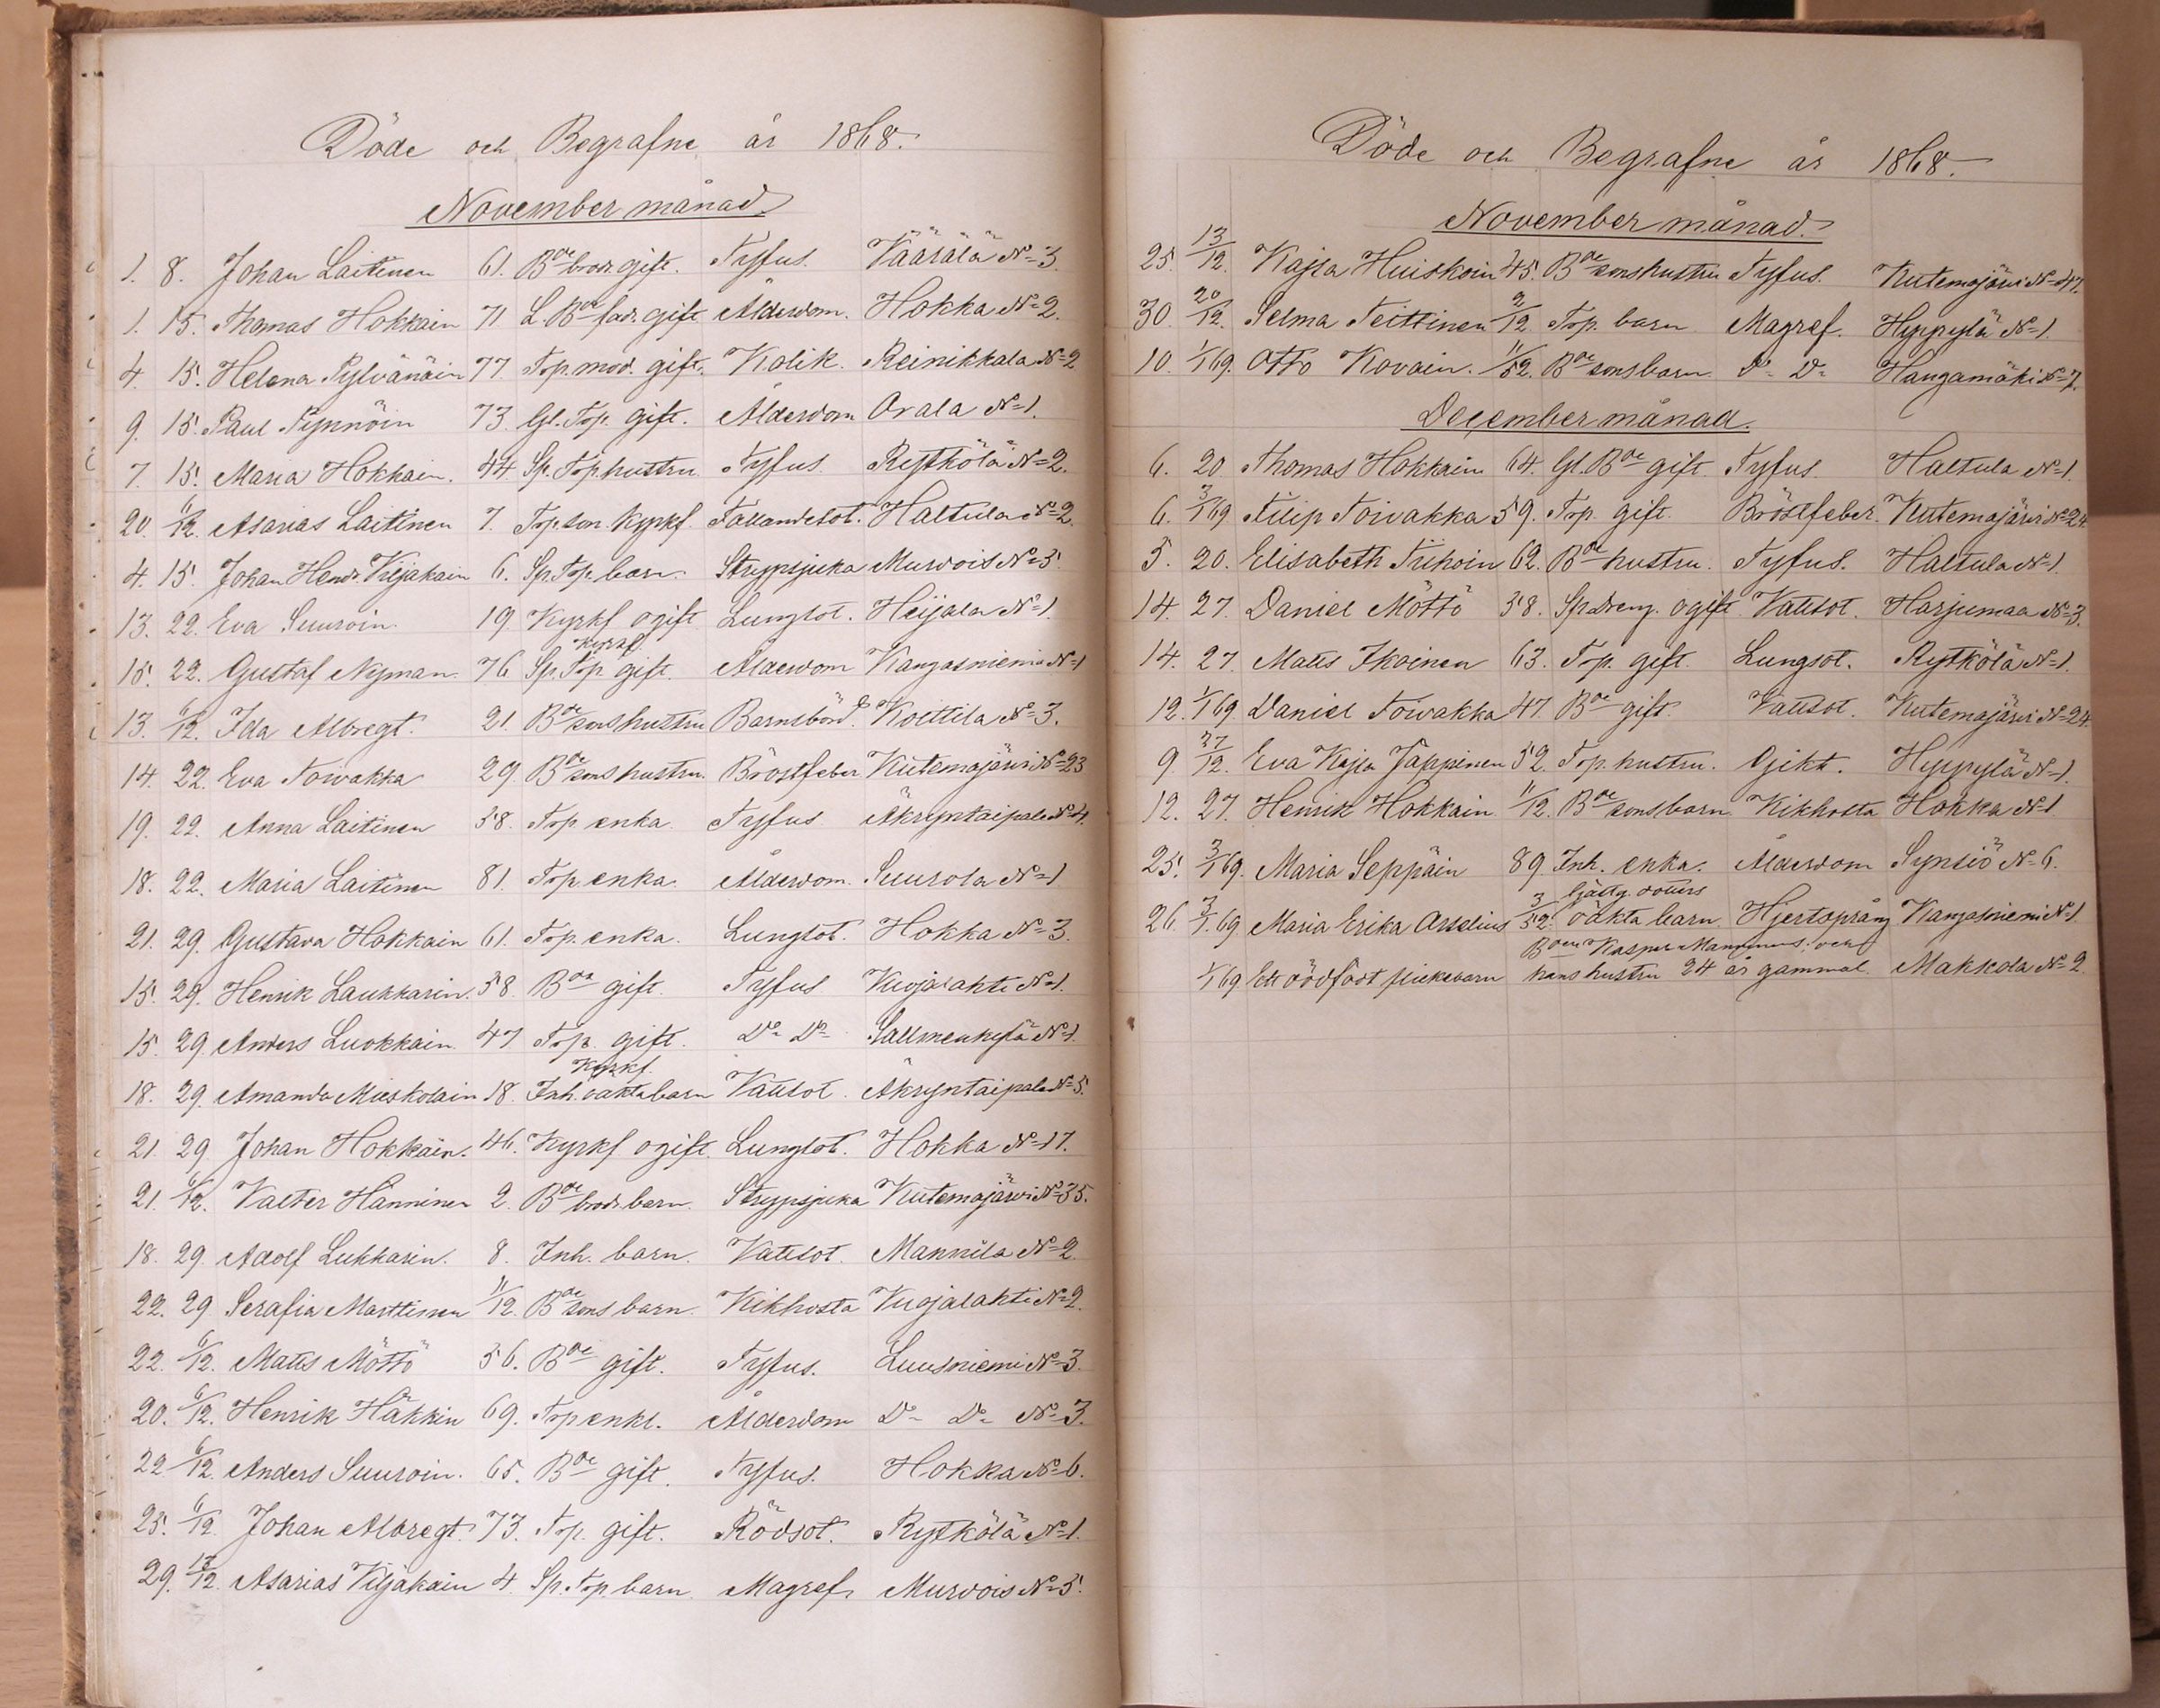 Döde och Begrafne år 1868.
November månad.
1. 8. Johan Laitinen 61. Bde brodr. gift. Tyfus. Väärälä No 3.
1. 15. Thomas Hokkain 71 L. Bde fad. gift Ålderdom. Hokka No 2.
4. 15. Helena Pylvänäin 77. Trp. mod. gift. Kolik. Reinikkala No 2
9. 15. Paul Pynnöin 73. Gl. Trp. gift. Ålderdom Orala No 1.
7. 15. Maria Hokkain. 44. Sp. Trp. hustru Tyfus. Rytkölä No 2.
20. 6/12. Asarias Laitinen 7. Trp. son. Kyrkf. Fallandesot. Haltula No 2.
4. 15. Johan Hendr. Viljakain 6. Sp. Trp. barn. Strypsjuka Murdois No 5.
13. 22. Eva Suuroin. 19. Kyrkf ogift Lungsot. Heijala No 1.
15. 22. Gustaf Nyman. 76. Sp. Trp Kyrkf. gift. Ålderdom Kangasniemi No 1
13. 6/12. Ida Albregt. 21. Bde sons hustru Barnsbörd. Koittila No 3.
14. 22. Eva Toivakka 29. Bde sons hustru. Bröstfeber Kutemajärvi No 23
19. 22. Anna Laitinen 58. Trp enka Tyfus Äkryntaipale No 4.
18. 22. Maria Laitinen 81. Trp enka. Ålderdom. Suurola No 1
21. 29. Gustava Hokkain 61. Trp. enka. Lungsot. Hokka No 3.
15. 29. Henrik Laukkarin. 58. Bde gift. Tyfus Vuojalahti No 1.
15. 29. Anders Luokkain. 47. Trp. gift. Do Do Sallmenkylä No 1.
18. 29. Amanda Mieskolain 18. Inh. oäkta barn Kyrkf. Vattsot. Äkryntaipale No 5.
21. 29. Johan Hokkain. 46. Kyrkf ogift. Lungsot. Hokka No 17.
21. 6/12. Valter Hänninen 2. Bde brodr. barn. Strypsjuka Kutemajärvi No 35.
18. 29. Adolf Lukkarin. 8. Inh. barn. Vattsot. Mannila No 2.
22. 29. Serafia Marttinen 11/12. Bde sons barn. Kikhosta Vuojalahti No 2.
22. 6/12. Matts Möttö 56. Bde gift. Tyfus. Luusniemi No 3.
20. 6/12. Henrik Häkkin 69. Trp enkl. Ålderdom Do Do No 3.
22 6/12. Anders Suuroin. 65. Bde gift. Tyfus. Hokka No 6.
25. 6/12 Johan Albregt 73. Trp. gift. Rödsot. Rytkölä No 1.
29. 13/12. Asarias Viljakain 4. Sp. Trp. barn Magref. Murdois No 5.
Döde och Begrafne år 1868.
November månad.
25. 13/12. Kajsa Huiskoin 45. Bde sons hustru Tyfus. Kutemajärvi No 47.
30. 20/12. Selma Teittinen 2/12. Trp. barn Magref. Hyppylä No 1.
10. 1/1 69. Otto Kovain. 11/52. Bde sons barn Do Do Hangamäki No 7.
December månad.
6. 20. Thomas Hokkain 64. Gl. Bde gift. Tyfus. Haltula No 1
6. 3/1 69 Filip Toivakka 59. Trp. gift. Bröstfeber. Kutemajärvi No 24
5. 20. Elisabeth Tiihoin 62. Bde hustru. Tyfus. Haltula No 1.
14. 27. Daniel Möttö 58. Sp dreng. ogift Vattsot. Harjumaa No 3.
14. 27. Matts Ikoinen 63. Trp. gift. Lungsot. Rytkölä No 1.
12. 1/1 69 Daniel Toivakka 47. Bde gift. Vattsot. Kutemajärvi No 24.
9. 27/12. Eva Kajsa Jäppinen 52. Trp. hustru. Gikt. Hyppylä No 1.
12. 27. Henrik Hokkain. 11/12. Bde sons barn Kikhosta Hokka No 1
25. 3/1 69. Maria Seppäin 89 Inh. enka. Ålderdom Synsiö No 6.
26. 3/1 69 Maria Erika Arselius 3/52. dotters oäkta barn. Hjertsprång Kangasniemi No 1
1/1 69 Ett dödfödt flickebarn Bden Kasper Manninens och hans hustru 24 år gammal. Makkola No 2